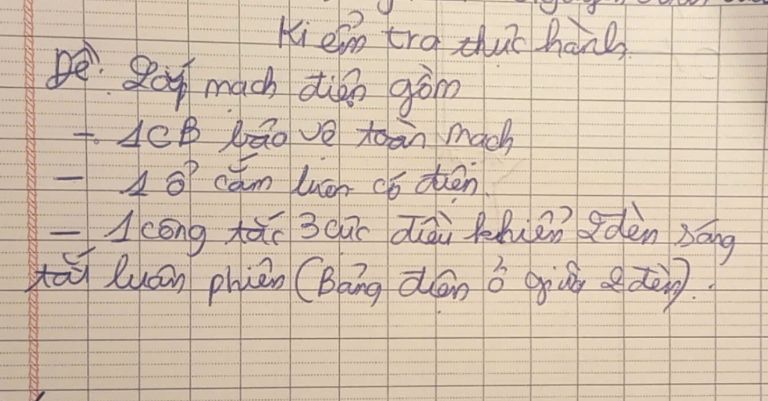 Kiểm tra thực hành
Đề: Lắp mạch điện gồm
- 1CB bảo vệ toàn mạch
- 1 ổ cắm luôn có điện.
- 1 công tắc 3 cực điều khiển 2 đèn sáng
tắt luân phiên (Bảng điện ở giữa 2 đèn).